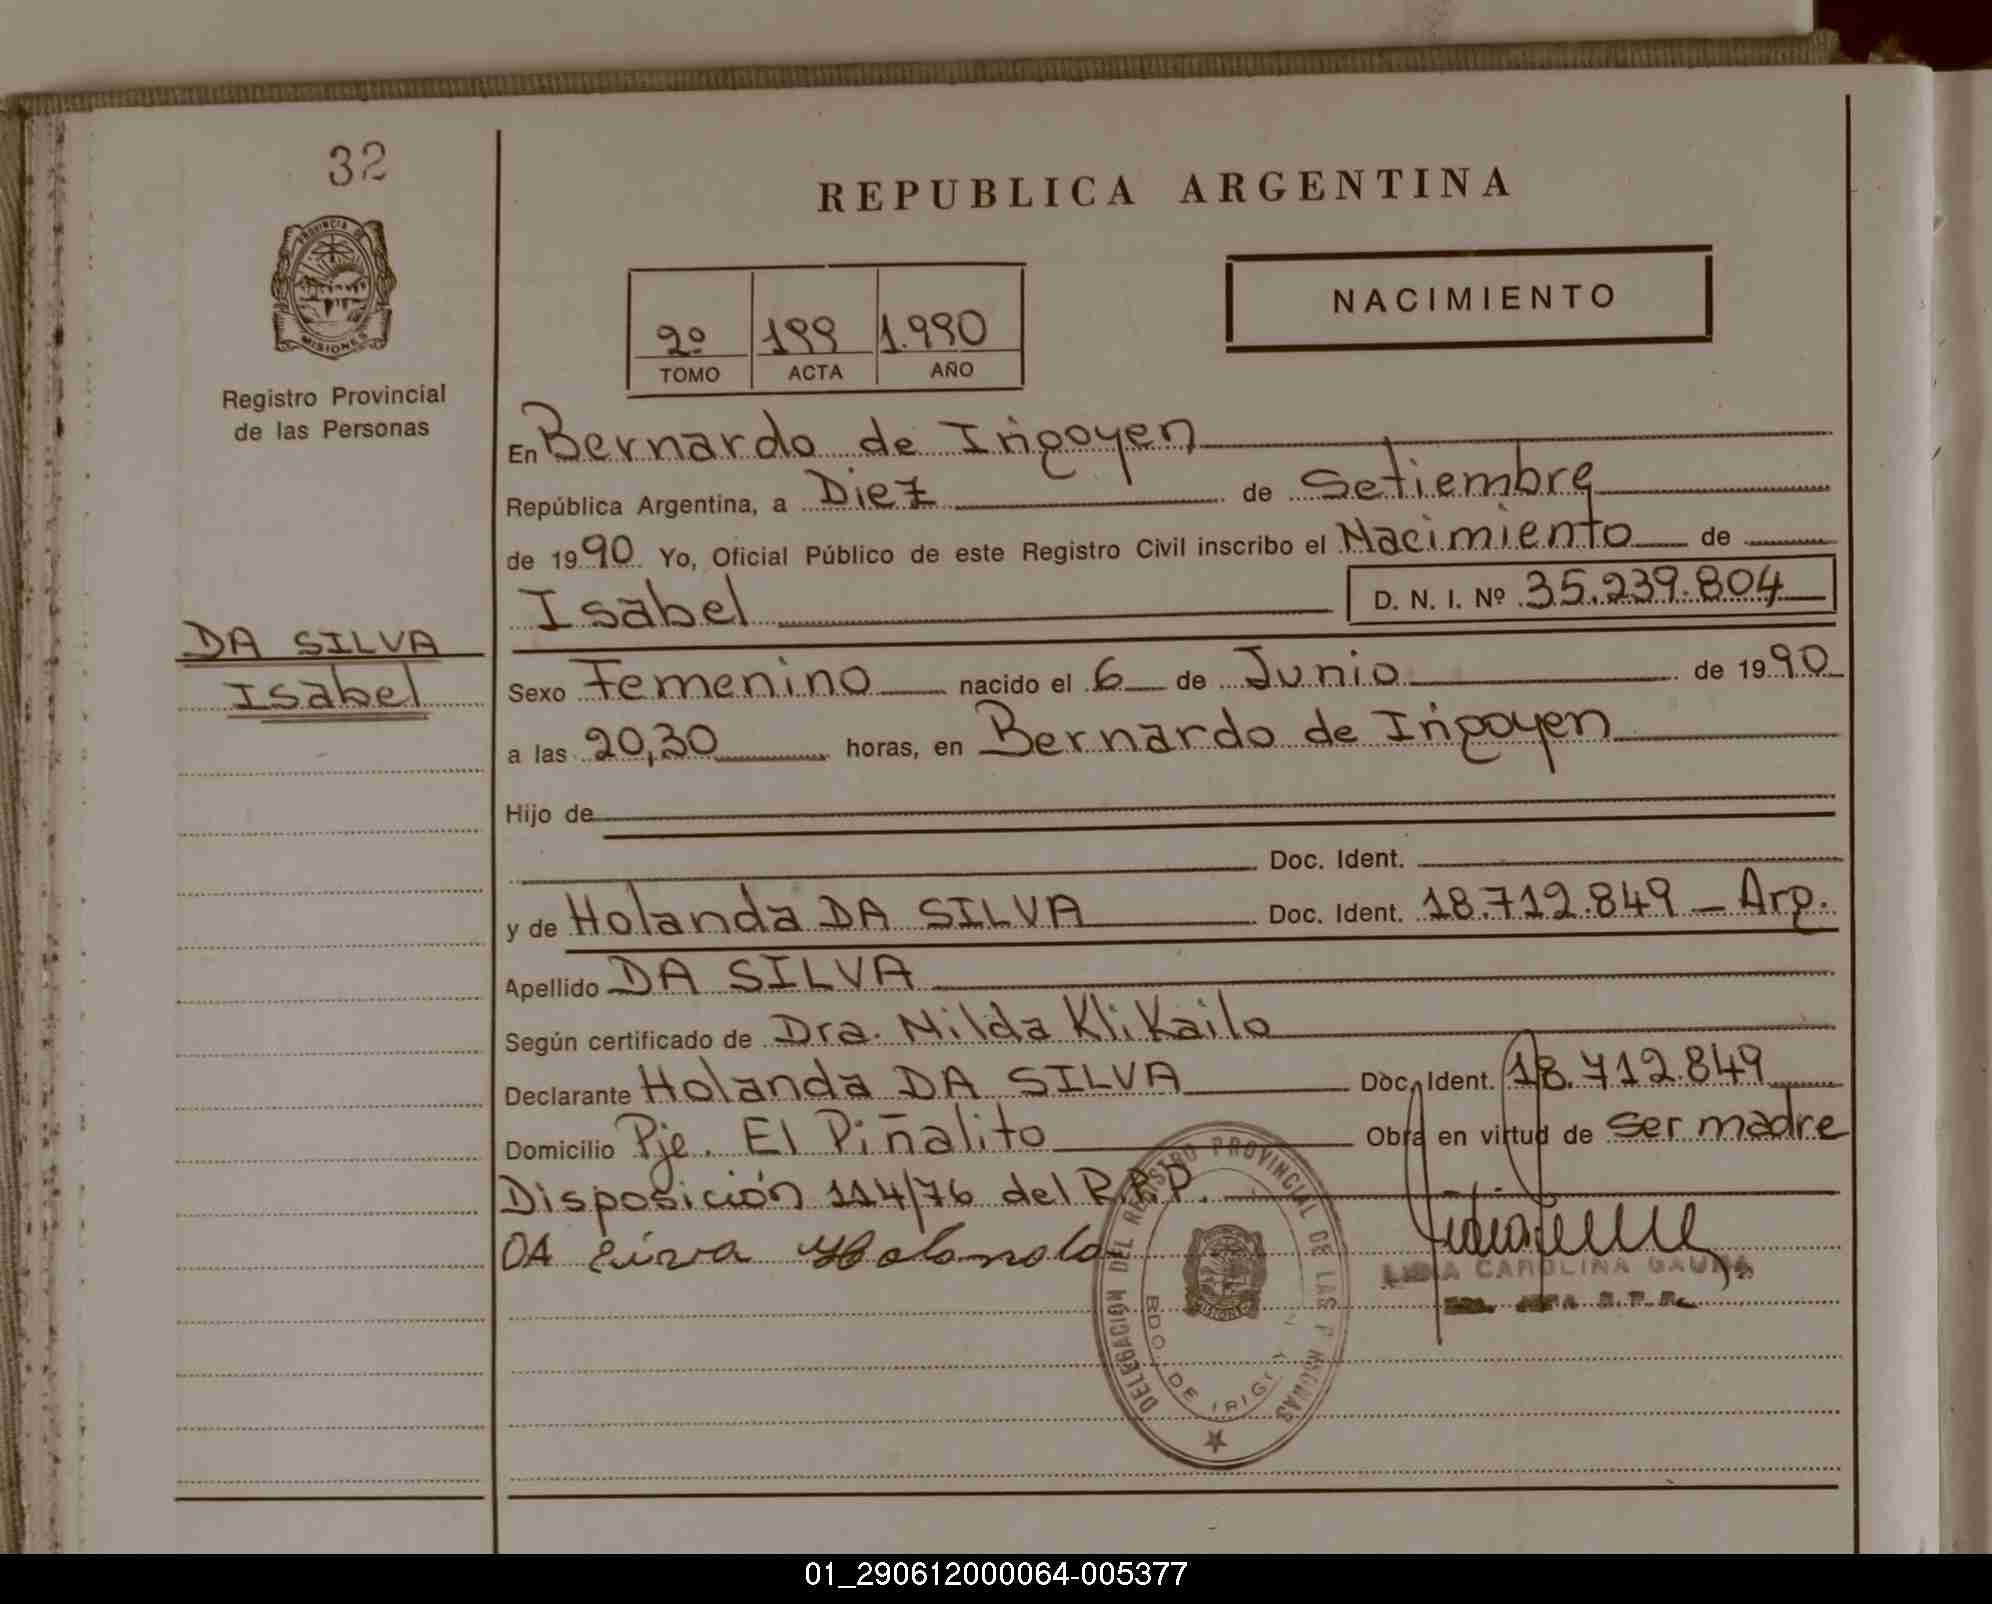 32
REPUBLICA ARGENTINA
PROVINCIA DE
MISIONES
NACIMIENTO
2º 199 1.990
TOMO ACTA AÑO
Registro Provincial
de las Personas
En Bernardo de Irigoyen
República Argentina, a Diez de Setiembre
de 1990 Yo, Oficial Público de este Registro Civil inscribo el Nacimiento de
Isabel D. N. I. Nº 35.239.804
DA SILVA
Isabel
Sexo Femenino nacido el 6 de Junio de 1990
a las 20,30 horas, en Bernardo de Irigoyen
Hijo de
Doc. Ident.
y de Holanda DA SILVA Doc. Ident. 18.712.849 - Arg.
Apellido DA SILVA
Según certificado de Dra. Nilda Klikailo
Declarante Holanda DA SILVA Doc. Ident. 18.712.849
Domicilio Pje. El Piñalito Obra en virtud de ser madre
Disposición 114/76 del R.P.P.
DA Silva Holanda
DELEGACION DEL REGISTRO PROVINCIAL DE LAS PERSONAS
BDO. DE IRIGOYEN
CAROLINA GAUNA
01_290612000064-005377